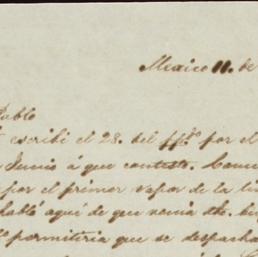 Mexico 11. de
Pablo
escribí el 28. del pp.do por el
Junio á que contesto.
por el primer vapor de la
habló aquí de que venia dho.
permitiria que se despacha